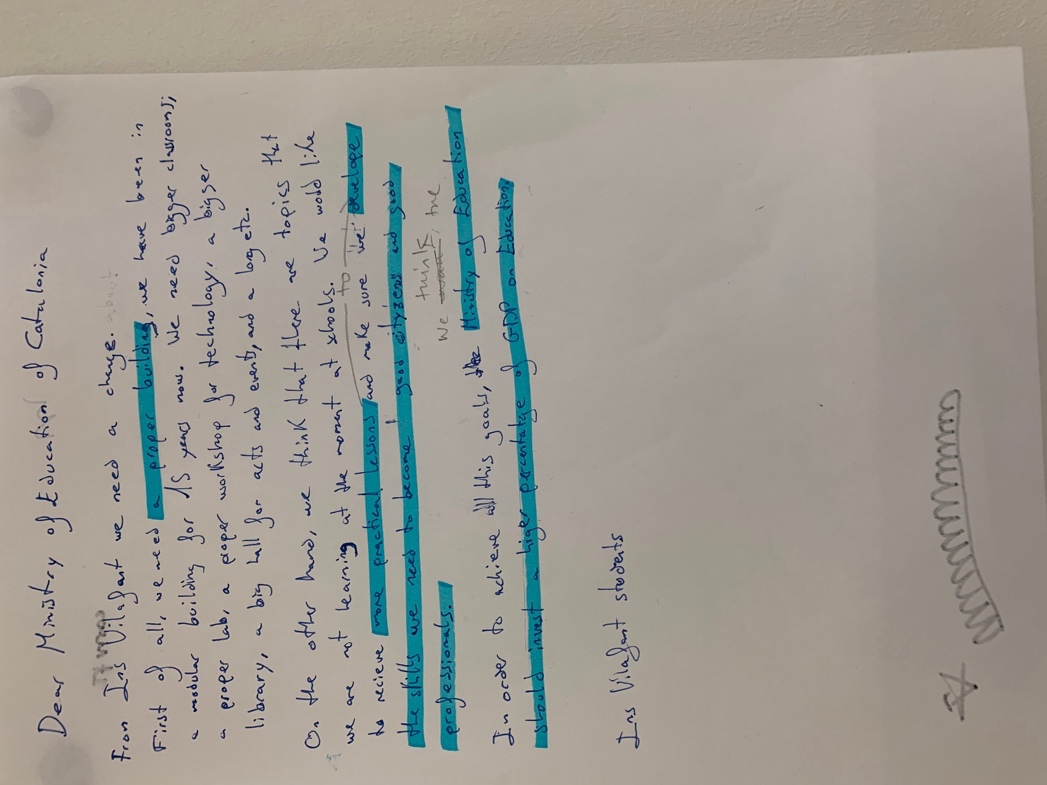 Dear Ministry of Education of Catalonia
From Ins Vilafant we need a change. about
First of all, we need a proper building, we have been in
a modular building for 15 years now. We need bigger classrooms,
a proper lab, a proper workshop for technology, a bigger
library, a big hall for acts and events, and a long etc.
On the other hand, we think that there are topics that
we are not learning at the moment at schools. We would like
to recieve more practical lessons and make sure we develope to
the skills we need to become good cityzens and good
professionals.
we think the
In order to achieve all this goals, the Ministry of Education
should invest a higer percentatge of GDP on Education.
Ins Vilafant students